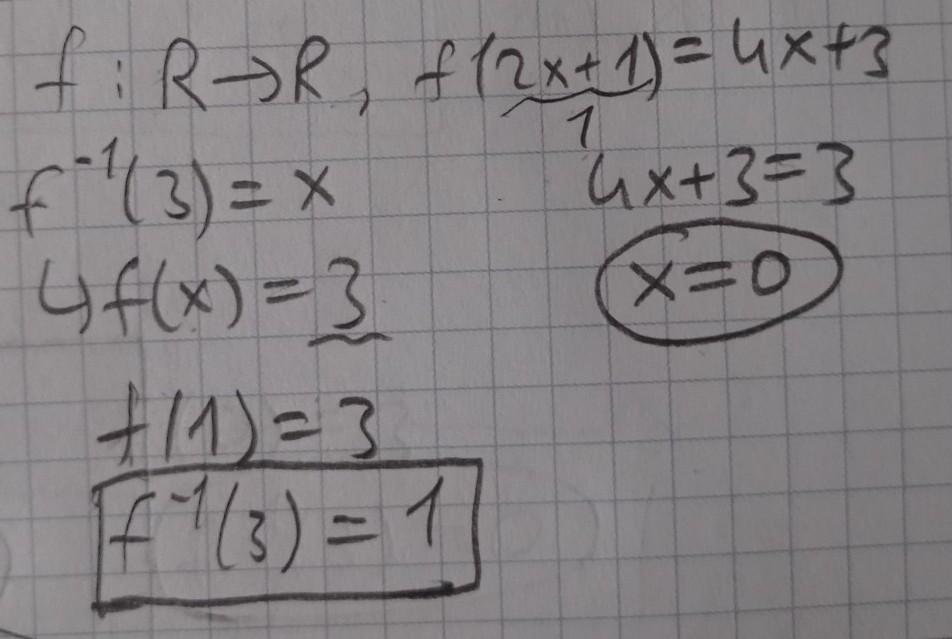 f : R→R, f(2x+1)=4x+3
1
f⁻¹(3)=x
4x+3=3
↳f(x)=3
x=0
f(1)=3
f⁻¹(3)=1